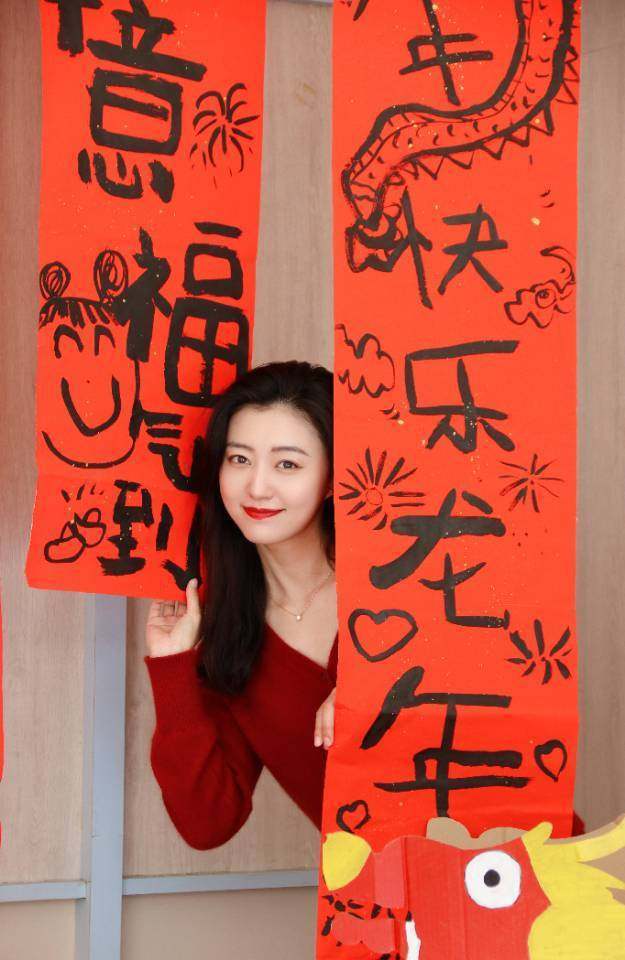 意福气到
年快乐龙年